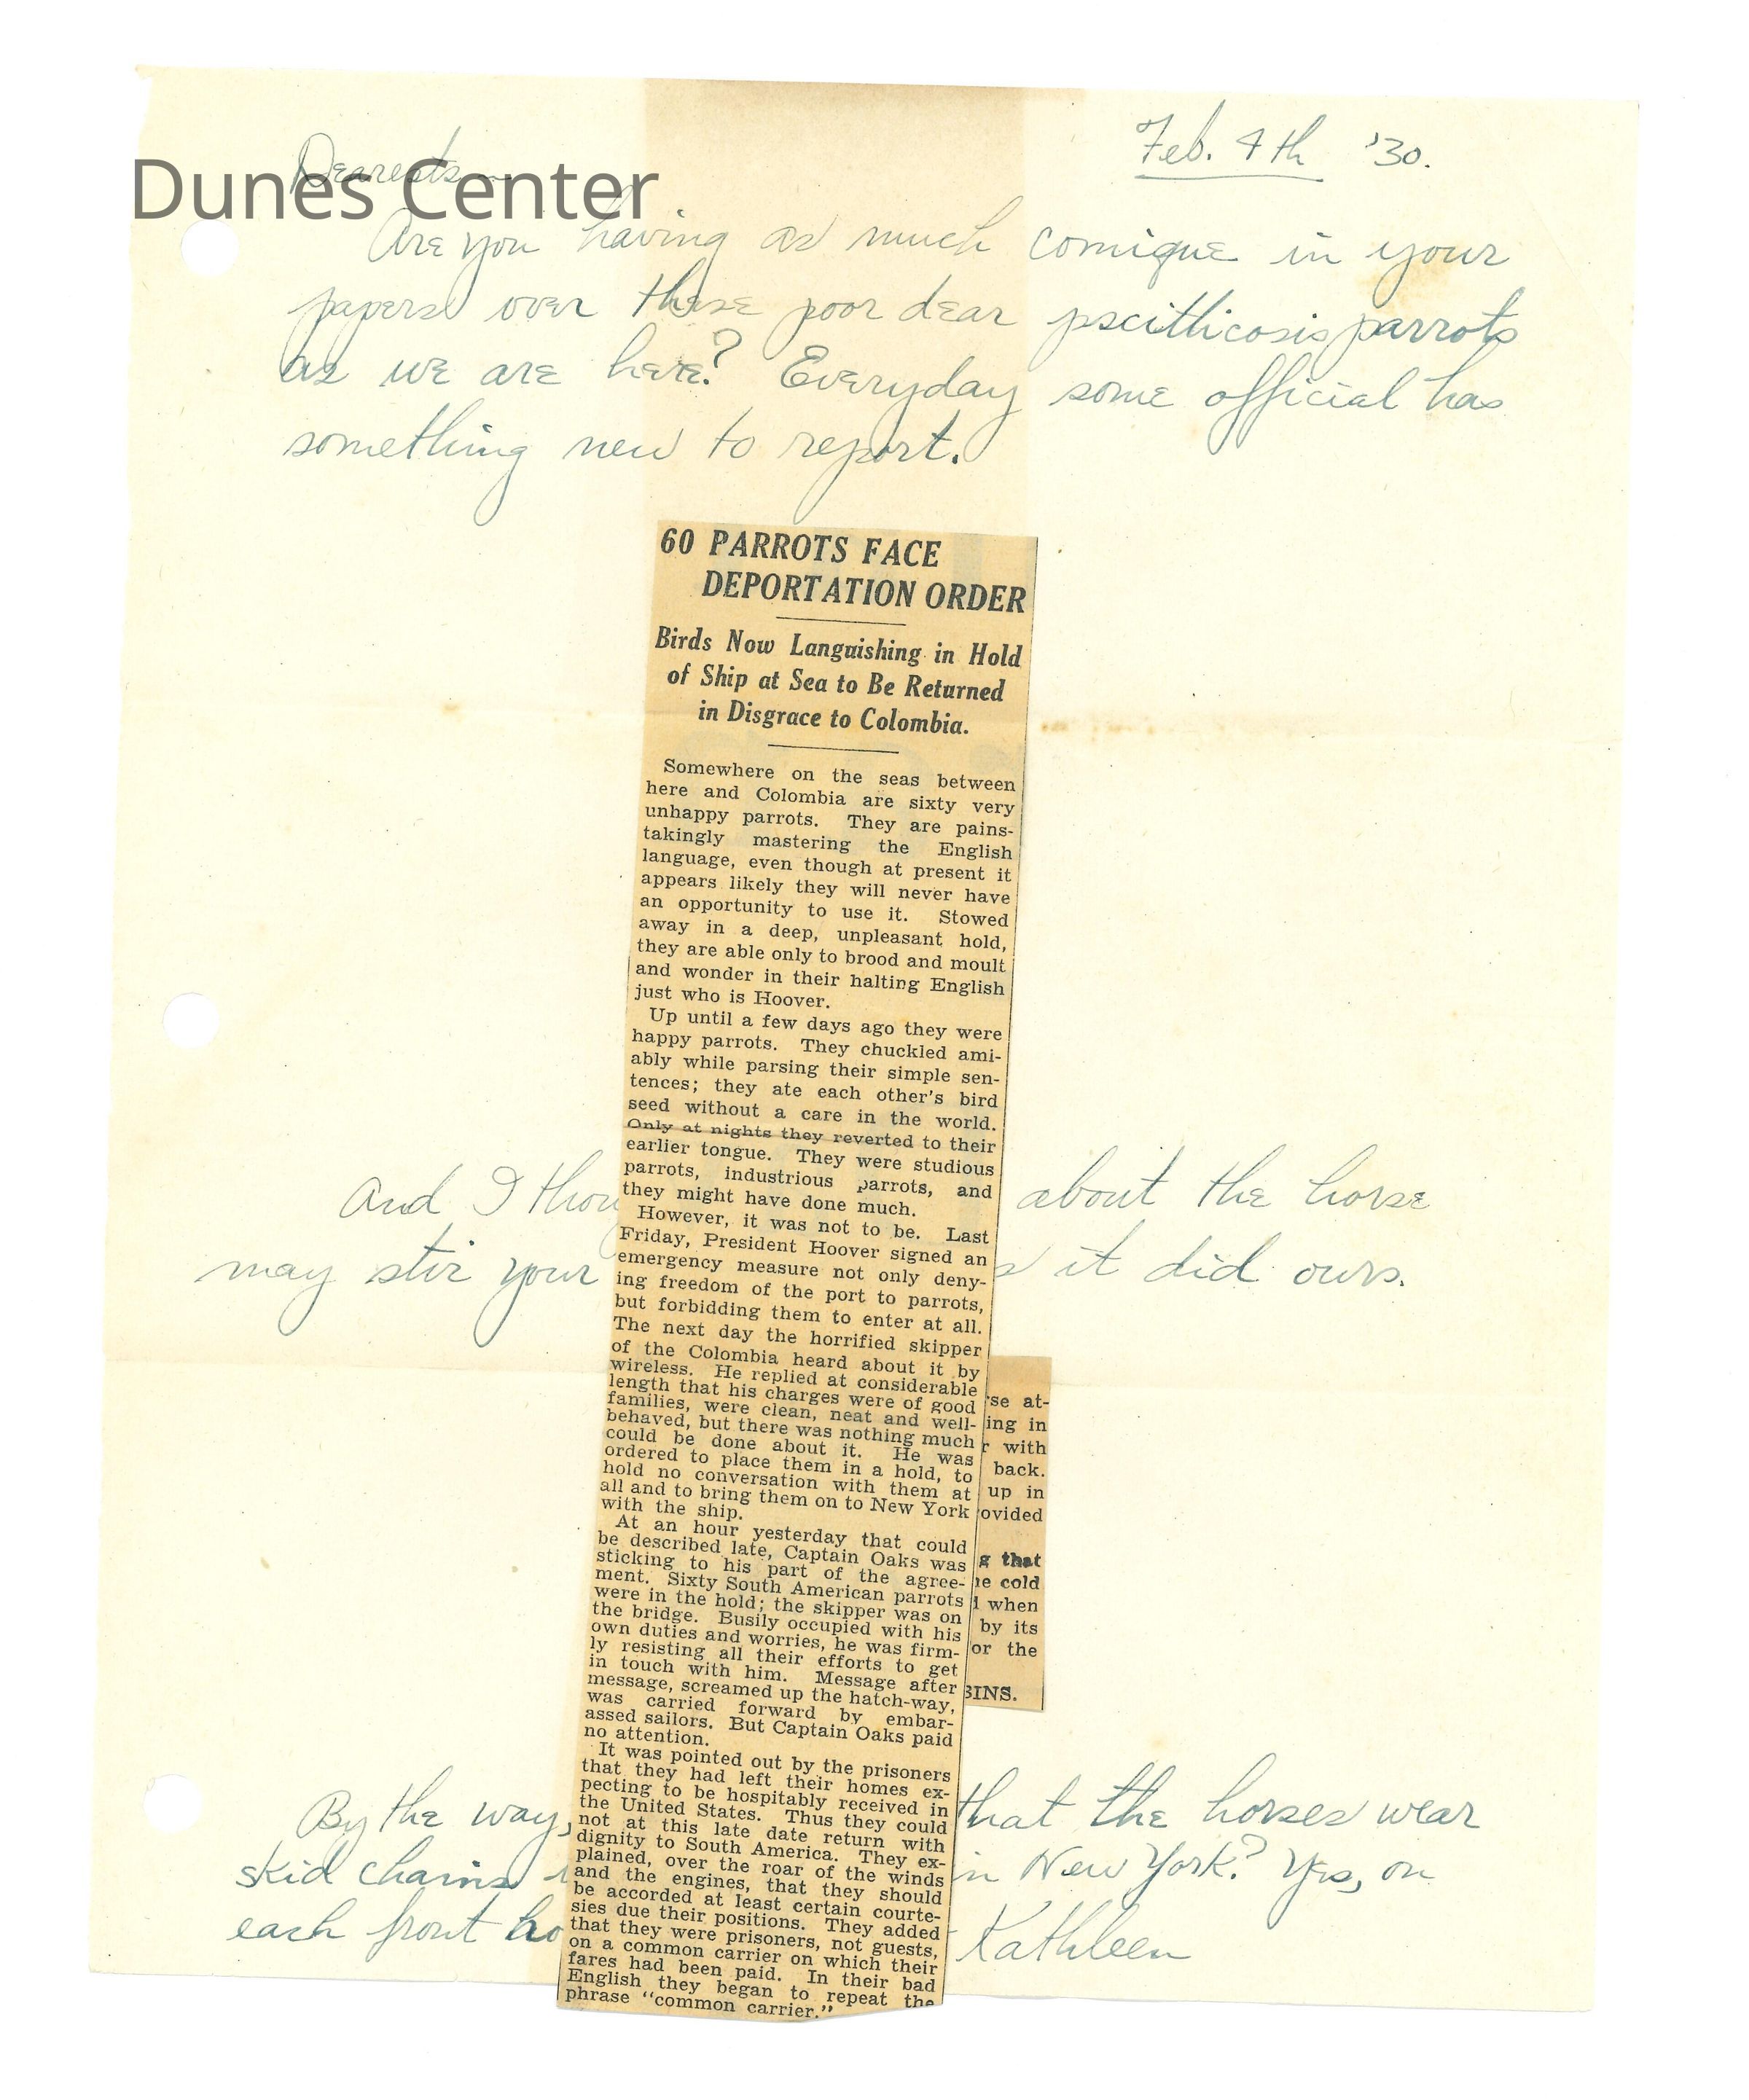 Dunes Center
Feb. 4th '30.
Dearests —
Are you having as much comique in your
papers over these poor dear pscitticosis parrots
as we are here? Everyday some official has
something new to report.
60 PARROTS FACE
DEPORTATION ORDER
Birds Now Languishing in Hold
of Ship at Sea to Be Returned
in Disgrace to Colombia.
Somewhere on the seas between
here and Colombia are sixty very
unhappy parrots. They are pains-
takingly mastering the English
language, even though at present it
appears likely they will never have
an opportunity to use it. Stowed
away in a deep, unpleasant hold,
they are able only to brood and moult
and wonder in their halting English
just who is Hoover.
Up until a few days ago they were
happy parrots. They chuckled ami-
ably while parsing their simple sen-
tences; they ate each other's bird
seed without a care in the world.
Only at nights they reverted to their
earlier tongue. They were studious
parrots, industrious parrots, and
they might have done much.
However, it was not to be. Last
Friday, President Hoover signed an
emergency measure not only deny-
ing freedom of the port to parrots,
but forbidding them to enter at all.
The next day the horrified skipper
of the Colombia heard about it by
wireless. He replied at considerable
length that his charges were of good
families, were clean, neat and well-
behaved, but there was nothing much
could be done about it. He was
ordered to place them in a hold, to
hold no conversation with them at
all and to bring them on to New York
with the ship.
At an hour yesterday that could
be described late, Captain Oaks was
sticking to his part of the agree-
ment. Sixty South American parrots
were in the hold; the skipper was on
the bridge. Busily occupied with his
own duties and worries, he was firm-
ly resisting all their efforts to get
in touch with him. Message after
message, screamed up the hatch-way,
was carried forward by embar-
assed sailors. But Captain Oaks paid
no attention.
It was pointed out by the prisoners
that they had left their homes ex-
pecting to be hospitably received in
the United States. Thus they could
not at this late date return with
dignity to South America. They ex-
plained, over the roar of the winds
and the engines, that they should
be accorded at least certain courte-
sies due their positions. They added
that they were prisoners, not guests,
on a common carrier on which their
fares had been paid. In their bad
English they began to repeat the
phrase "common carrier."
And I thou about the horse
may stir your s it did ours.
rse at-
ing in
r with
back.
up in
ovided
g that
he cold
d when
by its
or the
BINS.
By the way, that the horses wear
skid chains in New York? Yes, on
each front ho Kathleen